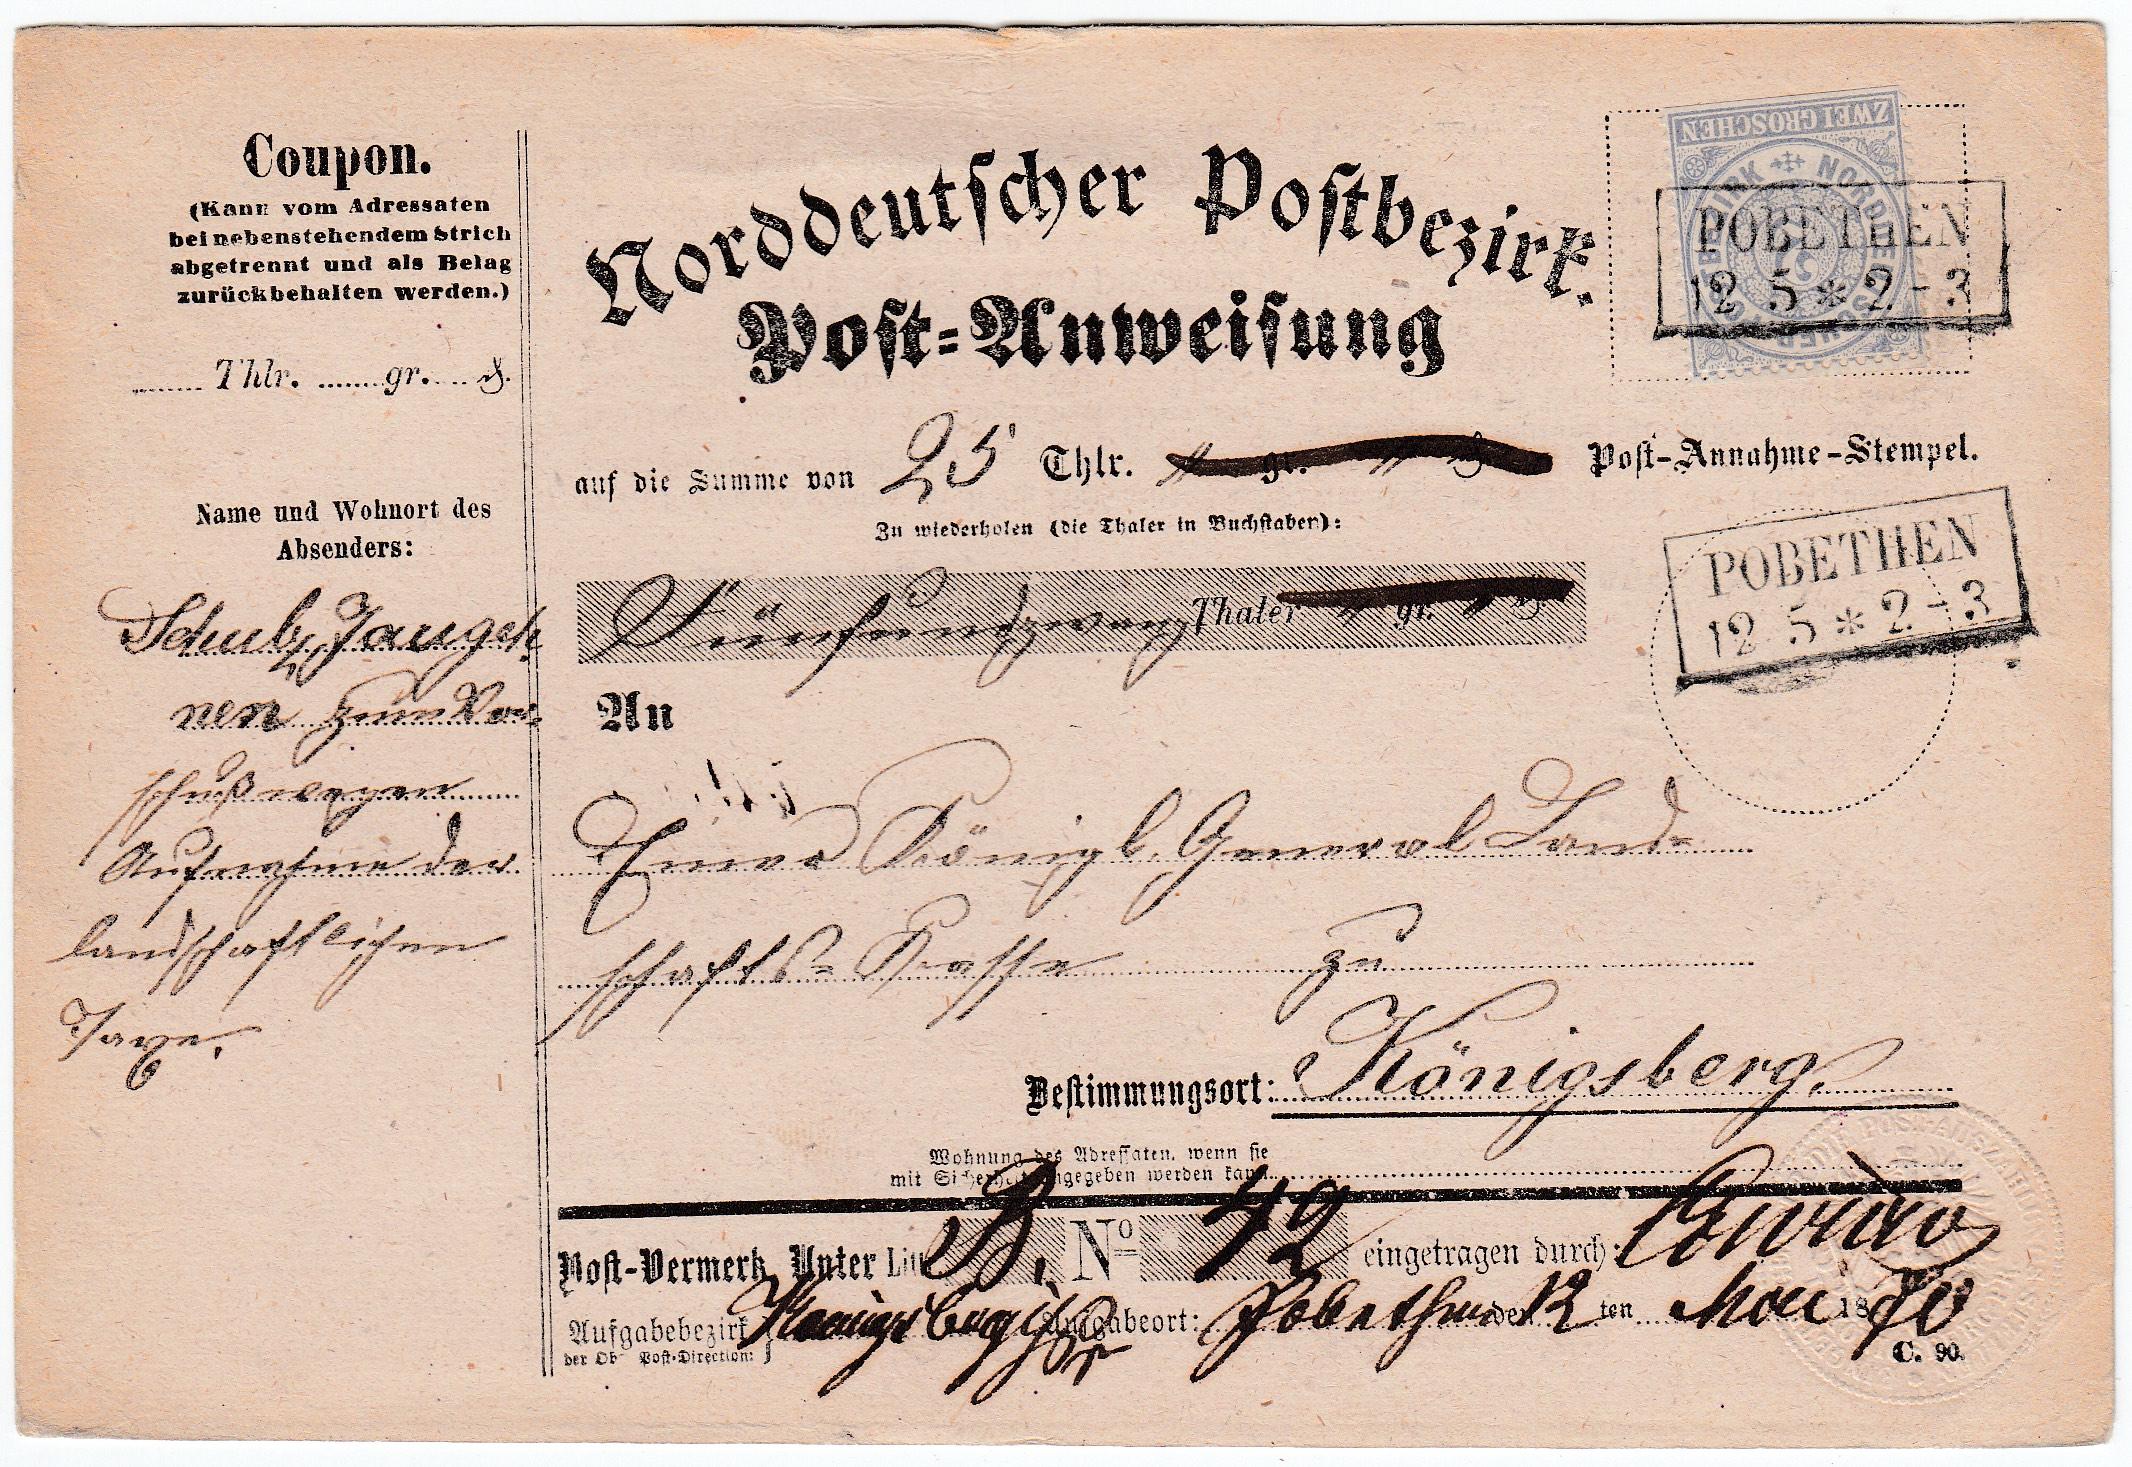 Coupon.
(Kann vom Adressaten
bei nebenstehendem Strich
abgetrennt und als Belag
zurückbehalten werden.)
Thlr. gr. ₰.
Name und Wohnort des
Absenders:
Schulz, Jaugeh
nen zum Vor-
schuß wegen
Aufnahme der
landschaftlichen
Taxe.
Norddeutscher Postbezirk.
Post-Anweisung
ZWEI GROSCHEN
NORDDEUTSCHER POSTBEZIRK
2
POBETHEN
12 5 * 2 - 3
auf die Summe von 25 Thlr. " gr. " ₰
Post-Annahme-Stempel.
Zu wiederholen (die Thaler in Buchstaben):
Fünfundzwanzig Thaler " gr. " ₰
POBETHEN
12 5 * 2 - 3
An
Königl. General Land-
schafts-Kasse zu
Bestimmungsort: Königsberg.
Wohnung des Adressaten, wenn sie
mit Sicherheit angegeben werden kann.
Post-Vermerk. Unter Litt. B. No 42 eingetragen durch:
Aufgabebezirk Koenigsberg i/Pr Aufgabeort: Pobethen den 12 ten Mai 1870
der Ob Post-Direction:
C. 90.